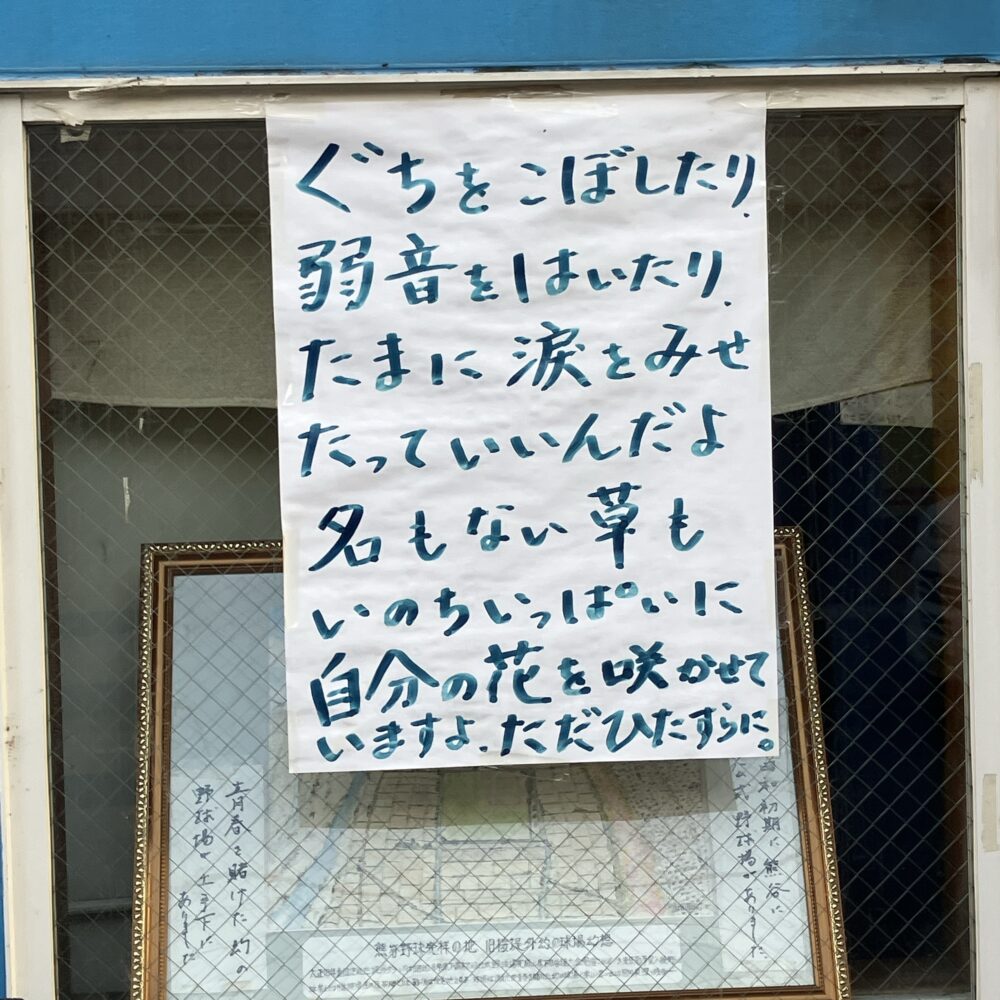 ぐちをこぼしたり、
弱音をはいたり、
たまに涙をみせ
たっていいんだよ
名もない草も
いのちいっぱいに
自分の花を咲かせて
いますよ、ただひたすらに。
昭和初期に熊谷に
公式野球場がありました
青春を賭けた幻の
野球場が土手下に
ありました
熊谷野球発祥の地